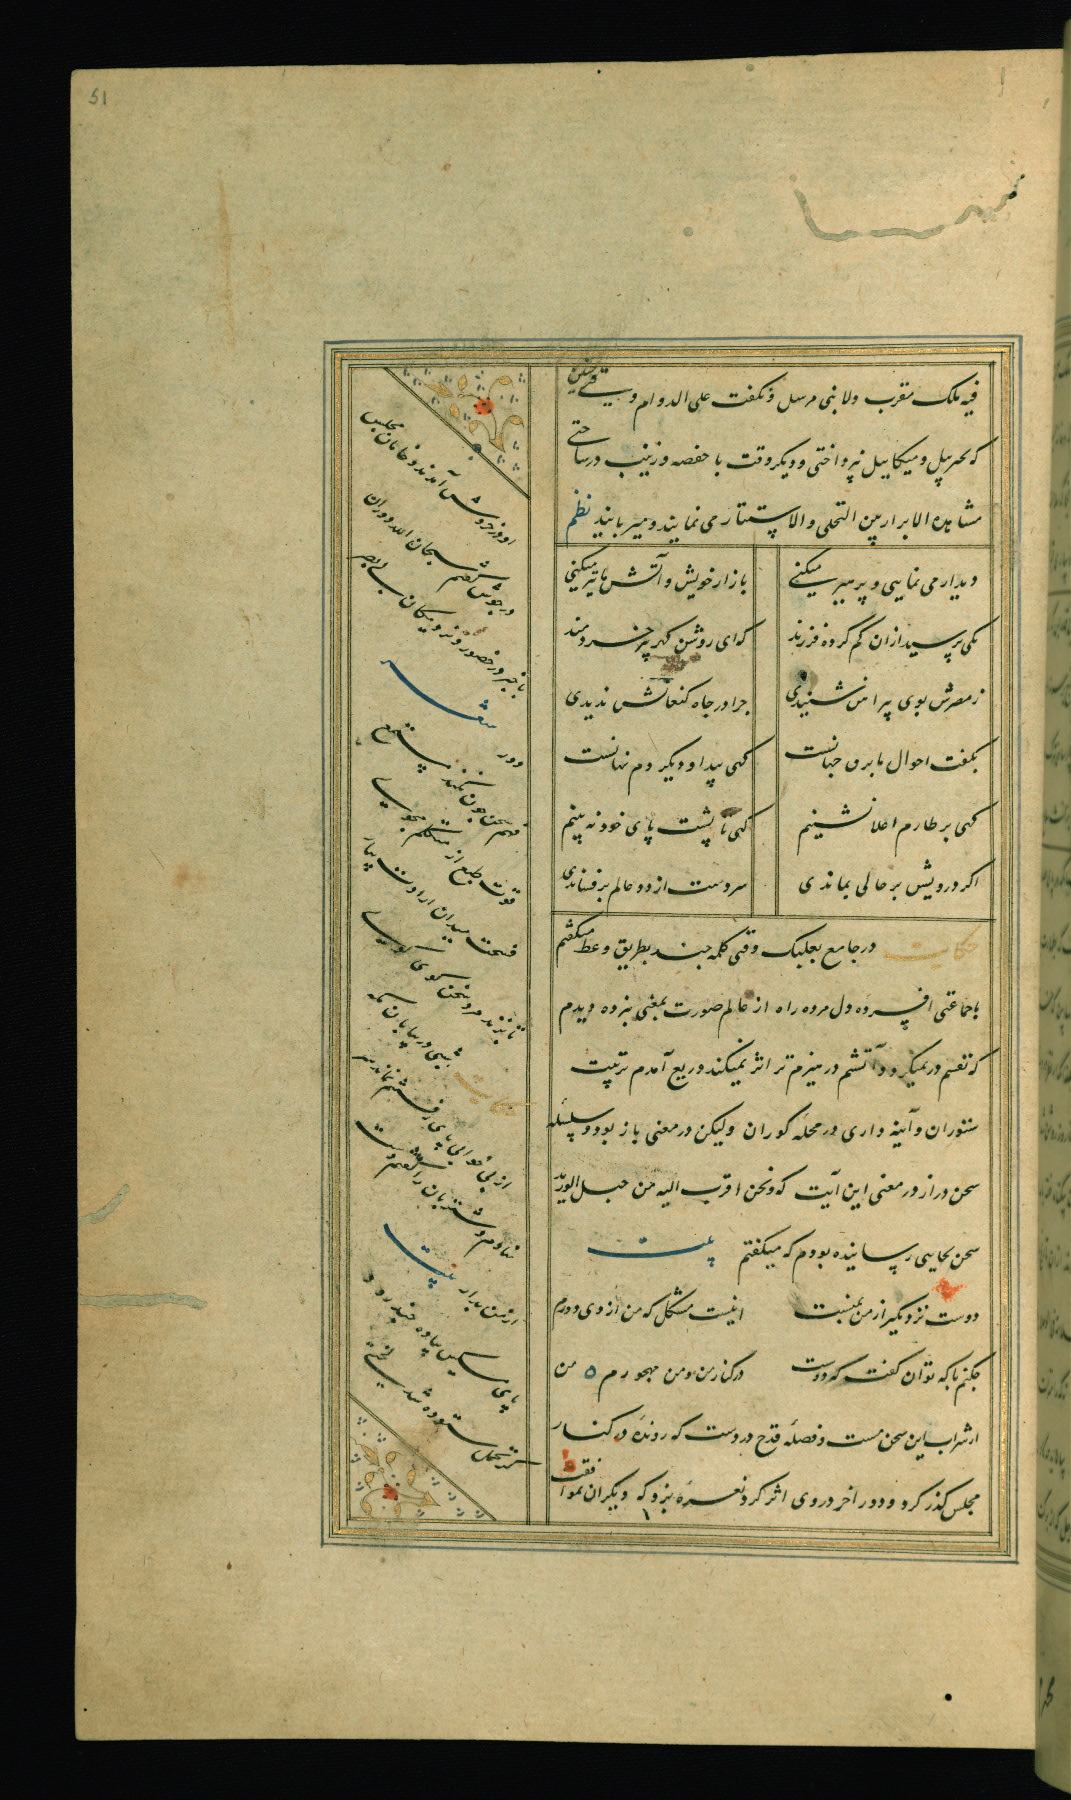 51
فیه ملک مقرب ولا نبی مرسل و نکفت علی الدوام وقتی چنین
که بجبرییل و میکاییل نپرداختی و دیکر وقت با حفصه و زینب درساختی
مشاهدة الابرار بین التجلی والاستتار می نمایند و میربایند نظم
دیدار می نمایی و پرهیز میکنی بازار خویش و آتش ما تیز میکنی
یکی پرسید ازان کم کرده فرزند که ای روشن کهر پیر خردمند
ز مصرش بوی پیراهن شنیدی چرا در چاه کنعانش ندیدی
بکفت احوال ما برق جهانست کهی پیدا و دیکر دم نهانست
کهی بر طارم اعلا نشینم کهی تا پشت پای خود نه بینم
اکر درویش بر حالی بماندی سر و دست از دو عالم برفشاندی
حکایت در جامع بعلبک وقتی کلمه چند بطریق وعظ میکفتم
با جماعتی افسرده دل مرده راه از عالم صورت بمعنی نبرده دیدم
که نفسم در نمیکیرد و آتشم در هیزم تر اثر نمیکند دریغ آمدم تربیت
ستوران و آینه داری در محله کوران ولیکن در معنی باز بود و سلسله
سخن دراز در معنی این آیت که ونحن اقرب الیه من حبل الورید
سخن بجایی رسانیده بودم که میکفتم بیت
دوست نزدیکتر از من بمنست اینست مشکل که من از وی دورم
چکنم با که توان کفت که دوست در کنار من و من مهجورم ٥ من
از شراب این سخن مست و فضله قدح در دست که رونده در کنار
مجلس کذر کرد و دور آخر در وی اثر کرد نعره بزد که دیکران بموافقت
او در خروش آمدند و خامان مجلس
در جوش کفتم سبحان الله دوران
با خبر در حضور و نزدیکان بی بصر
دور
شعر
فهم سخن چون نکند مستمع
قوت طبع از متکلم مجوی
فسحت میدان ارادت بیار
تا بزند مرد سخن کوی کوی
حکایت شبی در بیابان مکه
از بی خوابی پای رفتنم نماند سر
بنهادم و شتربان را کفتم دست
از من بدار بیت
پای مسکین پیاده چند رود
کز تحمل ستوده شد بختی